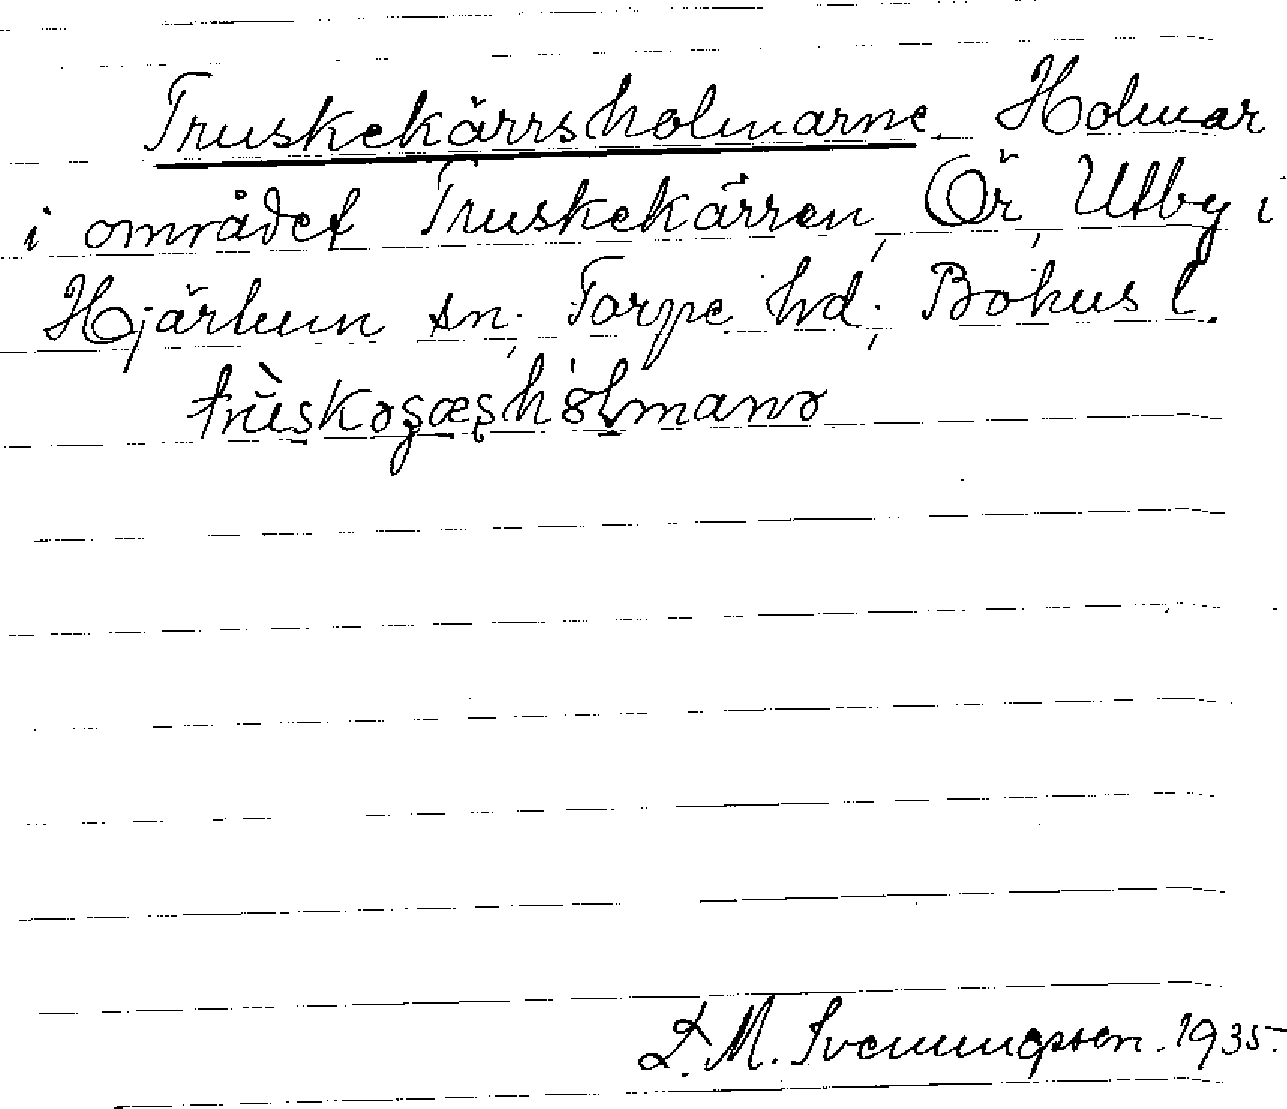 Truskekärrsholmarne. Holmar
i området Truskekärren, Ör, Utby i
Hjärtum sn; Torpe hd; Bohus l.
L. M. Svenungsson. 1935.